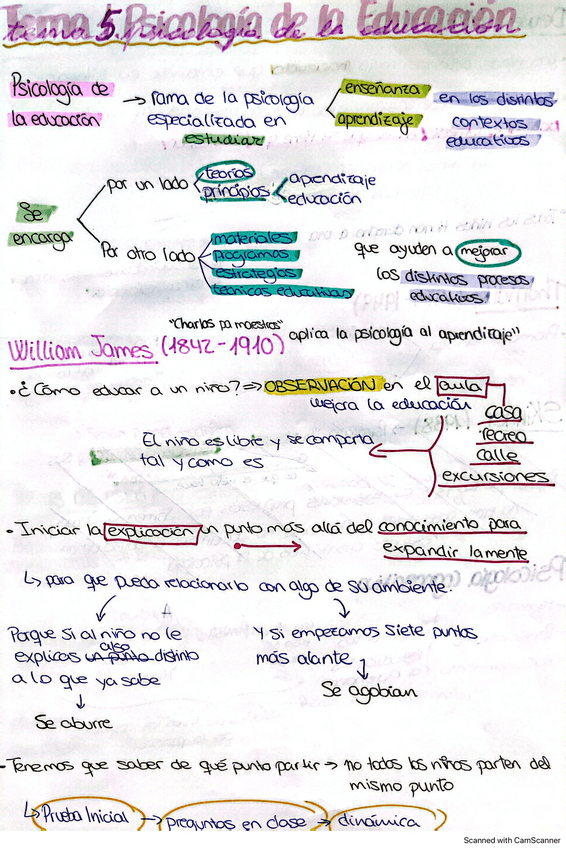 Tema 5. Psicología de la Educación.
Psicología de la educación → rama de la psicología especializada en estudiar
enseñanza
aprendizaje
en los distintos contextos educativos
Se encarga
por un lado
teorías
principios
aprendizaje
educación
Por otro lado
materiales
programas
estrategias
técnicas educativas
que ayuden a mejorar
los distintos procesos educativos
"Charlas pa maestros" aplica la psicología al aprendizaje"
William James (1842-1910)
• ¿Cómo educar a un niño? ⇒ OBSERVACIÓN en el aula
mejora la educación
casa
recreo
calle
excursiones
El niño es libre y se comporta
tal y como es
• Iniciar la explicación un punto más allá del conocimiento para
expandir la mente
↳ para que pueda relacionarlo con algo de su ambiente.
Porque si al niño no le
explicas algo distinto
a lo que ya sabe
↓
Se aburre
Y si empezamos siete puntos
más alante
Se agobian
- Tenemos que saber de qué punto partir → no todos los niños parten del
mismo punto
↳ Prueba Inicial → preguntas en clase → dinámica
Scanned with CamScanner